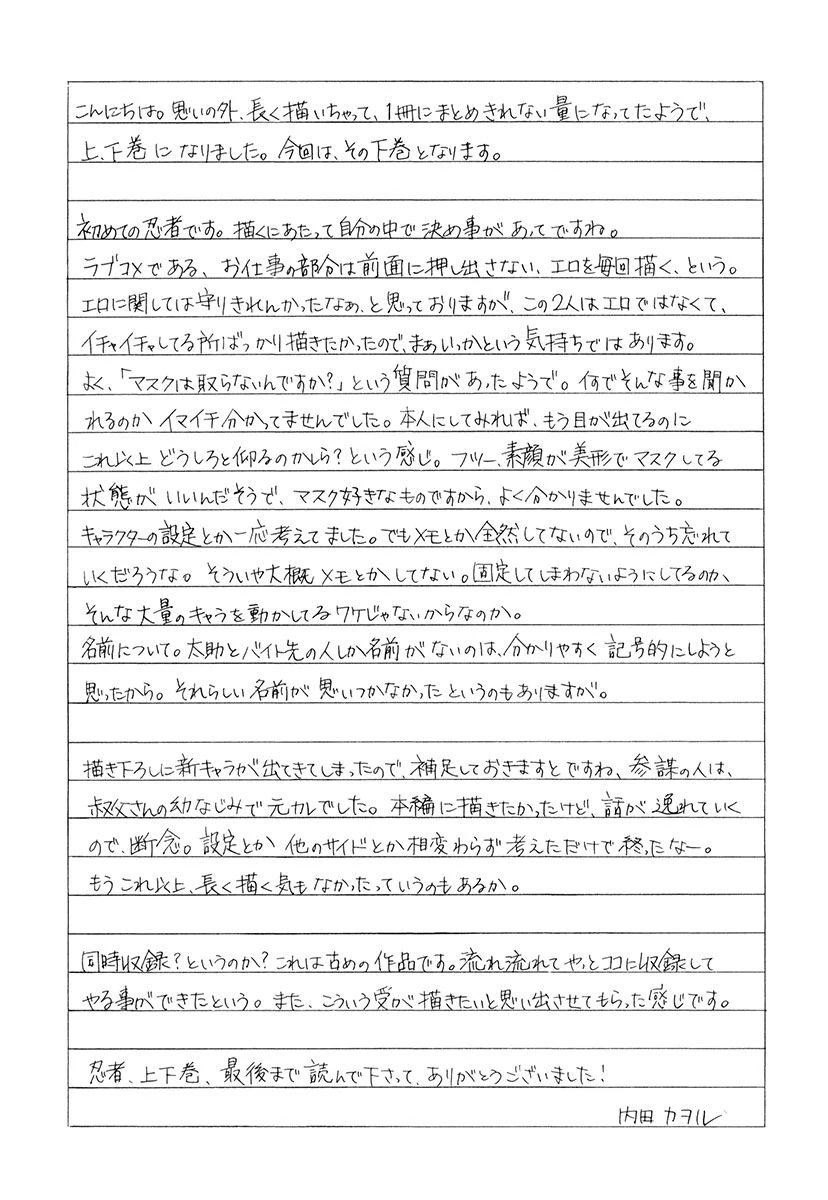 こんにちは。思いの外、長く描いちゃって、1冊にまとめきれない量になってたようで、
上、下巻になりました。今回は、その下巻となります。
初めての忍者です。描くにあたって自分の中で決め事があってですね。
ラブコメである、お仕事の部分は前面に押し出さない、エロを毎回描く、という。
エロに関しては守りきれんかったなぁ、と思っておりますが、この2人はエロではなくて、
イチャイチャしてる所ばっかり描きたかったので、まぁいっかという気持ちではあります。
よく、「マスクは取らないんですか?」という質問があったようで。何でそんな事を聞か
れるのかイマイチ分かってませんでした。本人にしてみれば、もう目が出てるのに
これ以上どうしろと仰るのかしら?という感じ。フツー、素顔が美形でマスクしてる
状態がいいんだそうで、マスク好きなものですから、よく分かりませんでした。
キャラクターの設定とか一応考えてました。でもメモとか全然してないので、そのうち忘れて
いくだろうな。そういや大概メモとかしてない。固定してしまわないようにしてるのか、
そんな大量のキャラを動かしてるワケじゃないからなのか。
名前について。太助とバイト先の人しか名前がないのは、分かりやすく記号的にしようと
思ったから。それらしい名前が思いつかなかったというのもありますが。
描き下ろしに新キャラが出てきてしまったので、補足しておきますとですね、参謀の人は、
叔父さんの幼なじみで元カレでした。本編に描きたかったけど、話が逸れていく
ので、断念。設定とか他のサイドとか相変わらず考えただけで終ったなー。
もうこれ以上、長く描く気もなかったっていうのもあるか。
同時収録?というのか?これは古めの作品です。流れ流れてやっとココに収録して
やる事ができたという。また、こういう受が描きたいと思い出させてもらった感じです。
忍者、上下巻、最後まで読んで下さって、ありがとうございました!
内田カヲル